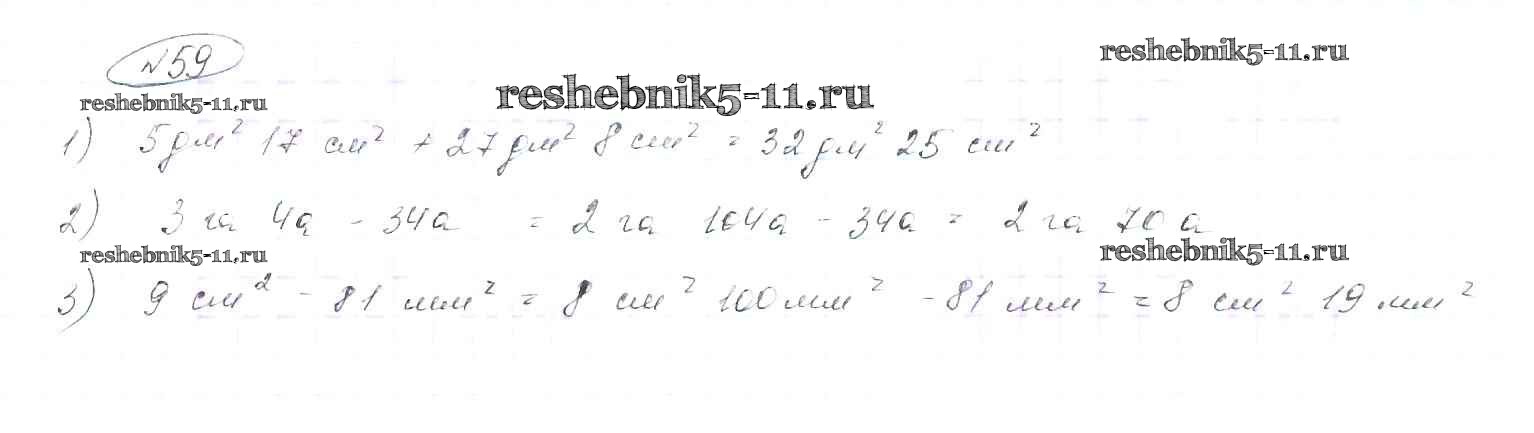 №59
reshebnik5-11.ru
reshebnik5-11.ru
reshebnik5-11.ru
1) 5 дм² 17 см² + 27 дм² 8 см² = 32 дм² 25 см²
2) 3 га 4а - 34а = 2 га 104а - 34а = 2 га 70 а
reshebnik5-11.ru
reshebnik5-11.ru
3) 9 см² - 81 мм² = 8 см² 100 мм² - 81 мм² = 8 см² 19 мм²